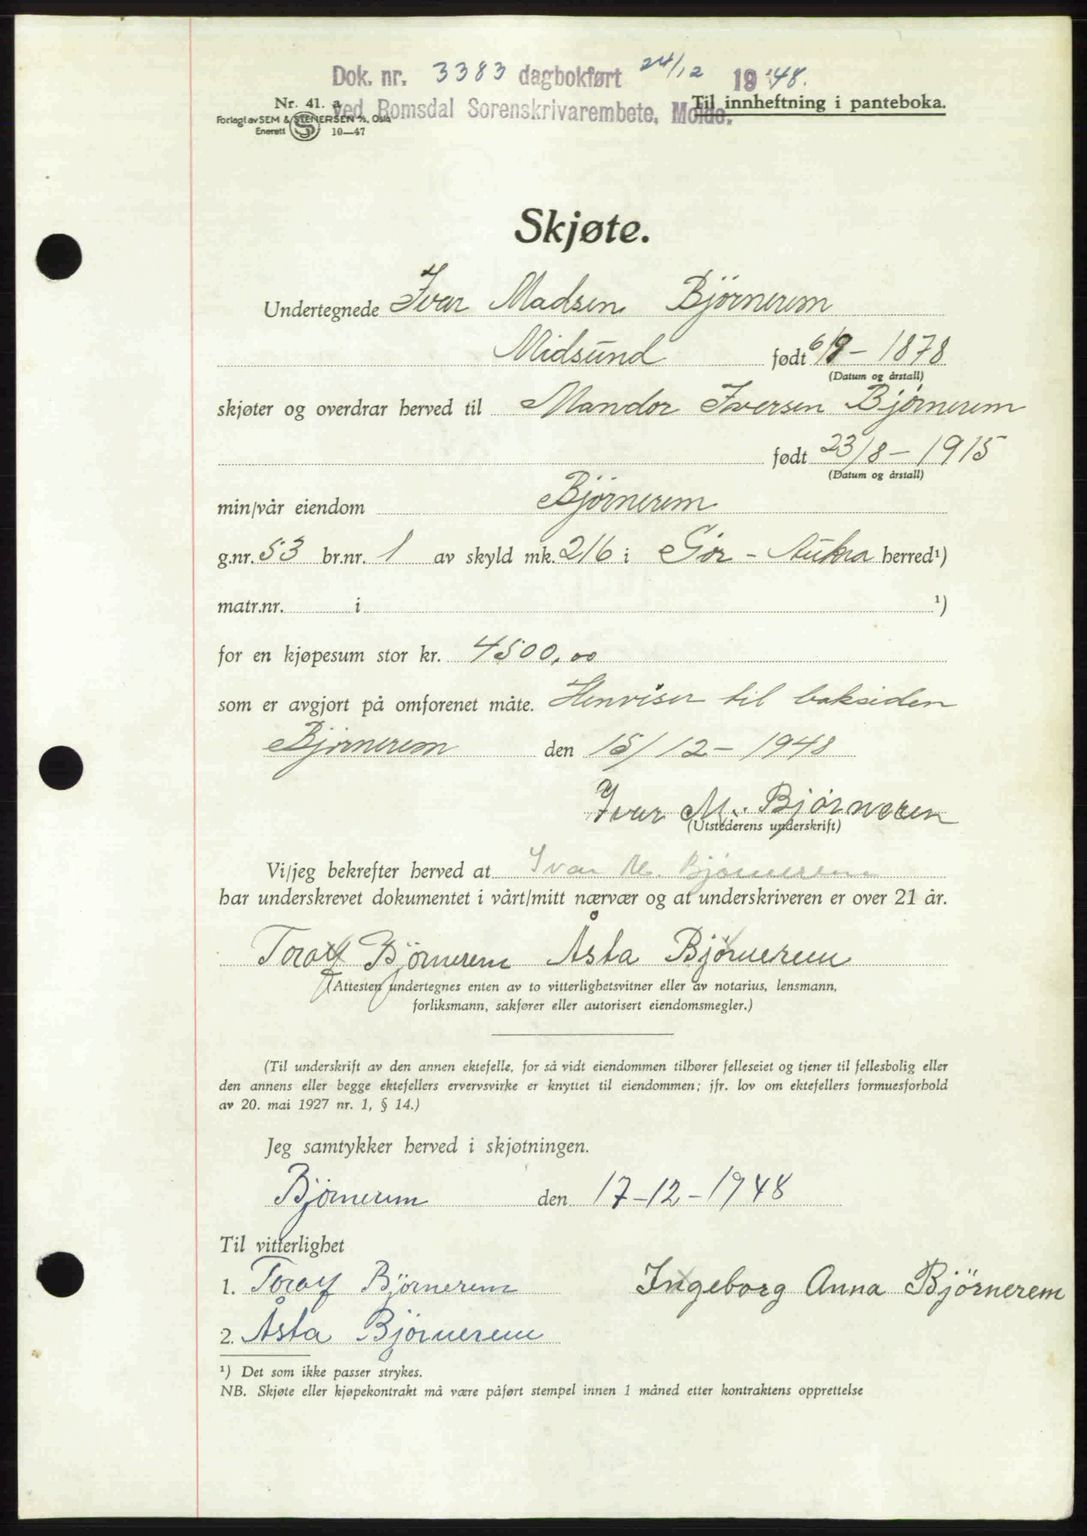 Dok. nr. 3383 dagbokført 24/12 1948.
Nr. 41. a ved Romsdal Sorenskrivarembete, Molde. Til innheftning i panteboka.
Forlagt av SEM & STENERSEN A/S, Oslo
Enerett S 10—47
Skjøte.
Undertegnede Ivar Madsen Bjørnerem
Midsund født 6/9 – 1878
(Datum og årstall)
skjøter og overdrar herved til Mandor Iversen Bjørnerem
født 23/8 – 1915
(Datum og årstall)
min/vår eiendom Bjørnerem
g.nr. 53 br.nr. 1 av skyld mk. 216 i Sør - Aukra herred¹)
matr.nr. i ¹)
for en kjøpesum stor kr. 4500,00
som er avgjort på omforenet måte. Henviser til baksiden
Bjørnerem den 15/12 – 1948
Ivar M. Bjørneren
(Utstederens underskrift)
Vi/jeg bekrefter herved at Ivar M. Bjørnerem
har underskrevet dokumentet i vårt/mitt nærvær og at underskriveren er over 21 år.
Bjørnerem Åsta Bjørnerem
(Attesten undertegnes enten av to vitterlighetsvitner eller av notarius, lensmann,
forliksmann, sakfører eller autorisert eiendomsmegler.)
(Til underskrift av den annen ektefelle, for så vidt eiendommen tilhører felleseiet og tjener til fellesbolig eller
den annens eller begge ektefellers ervervsvirke er knyttet til eiendommen; jfr. lov om ektefellers formuesforhold
av 20. mai 1927 nr. 1, § 14.)
Jeg samtykker herved i skjøtningen.
Bjørnerem den 17-12-1948
Til vitterlighet
1. Bjørnerem Ingeborg Anna Bjørnerem
2. Åsta Bjørnerem
¹) Det som ikke passer strykes.
NB. Skjøte eller kjøpekontrakt må være påført stempel innen 1 måned etter kontraktens opprettelse